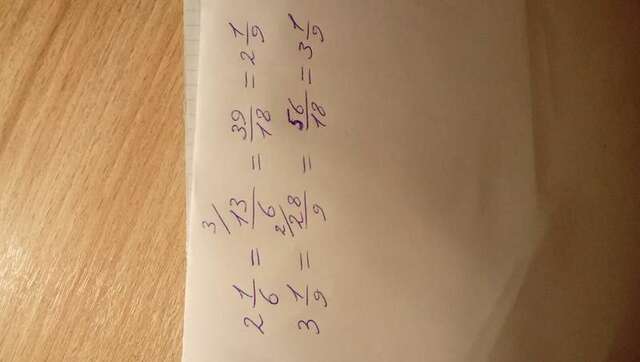 2 1/6 = 3/ 13/6 = 39/18 = 2 1/9
3 1/9 = 2/ 28/9 = 56/18 = 3 1/9